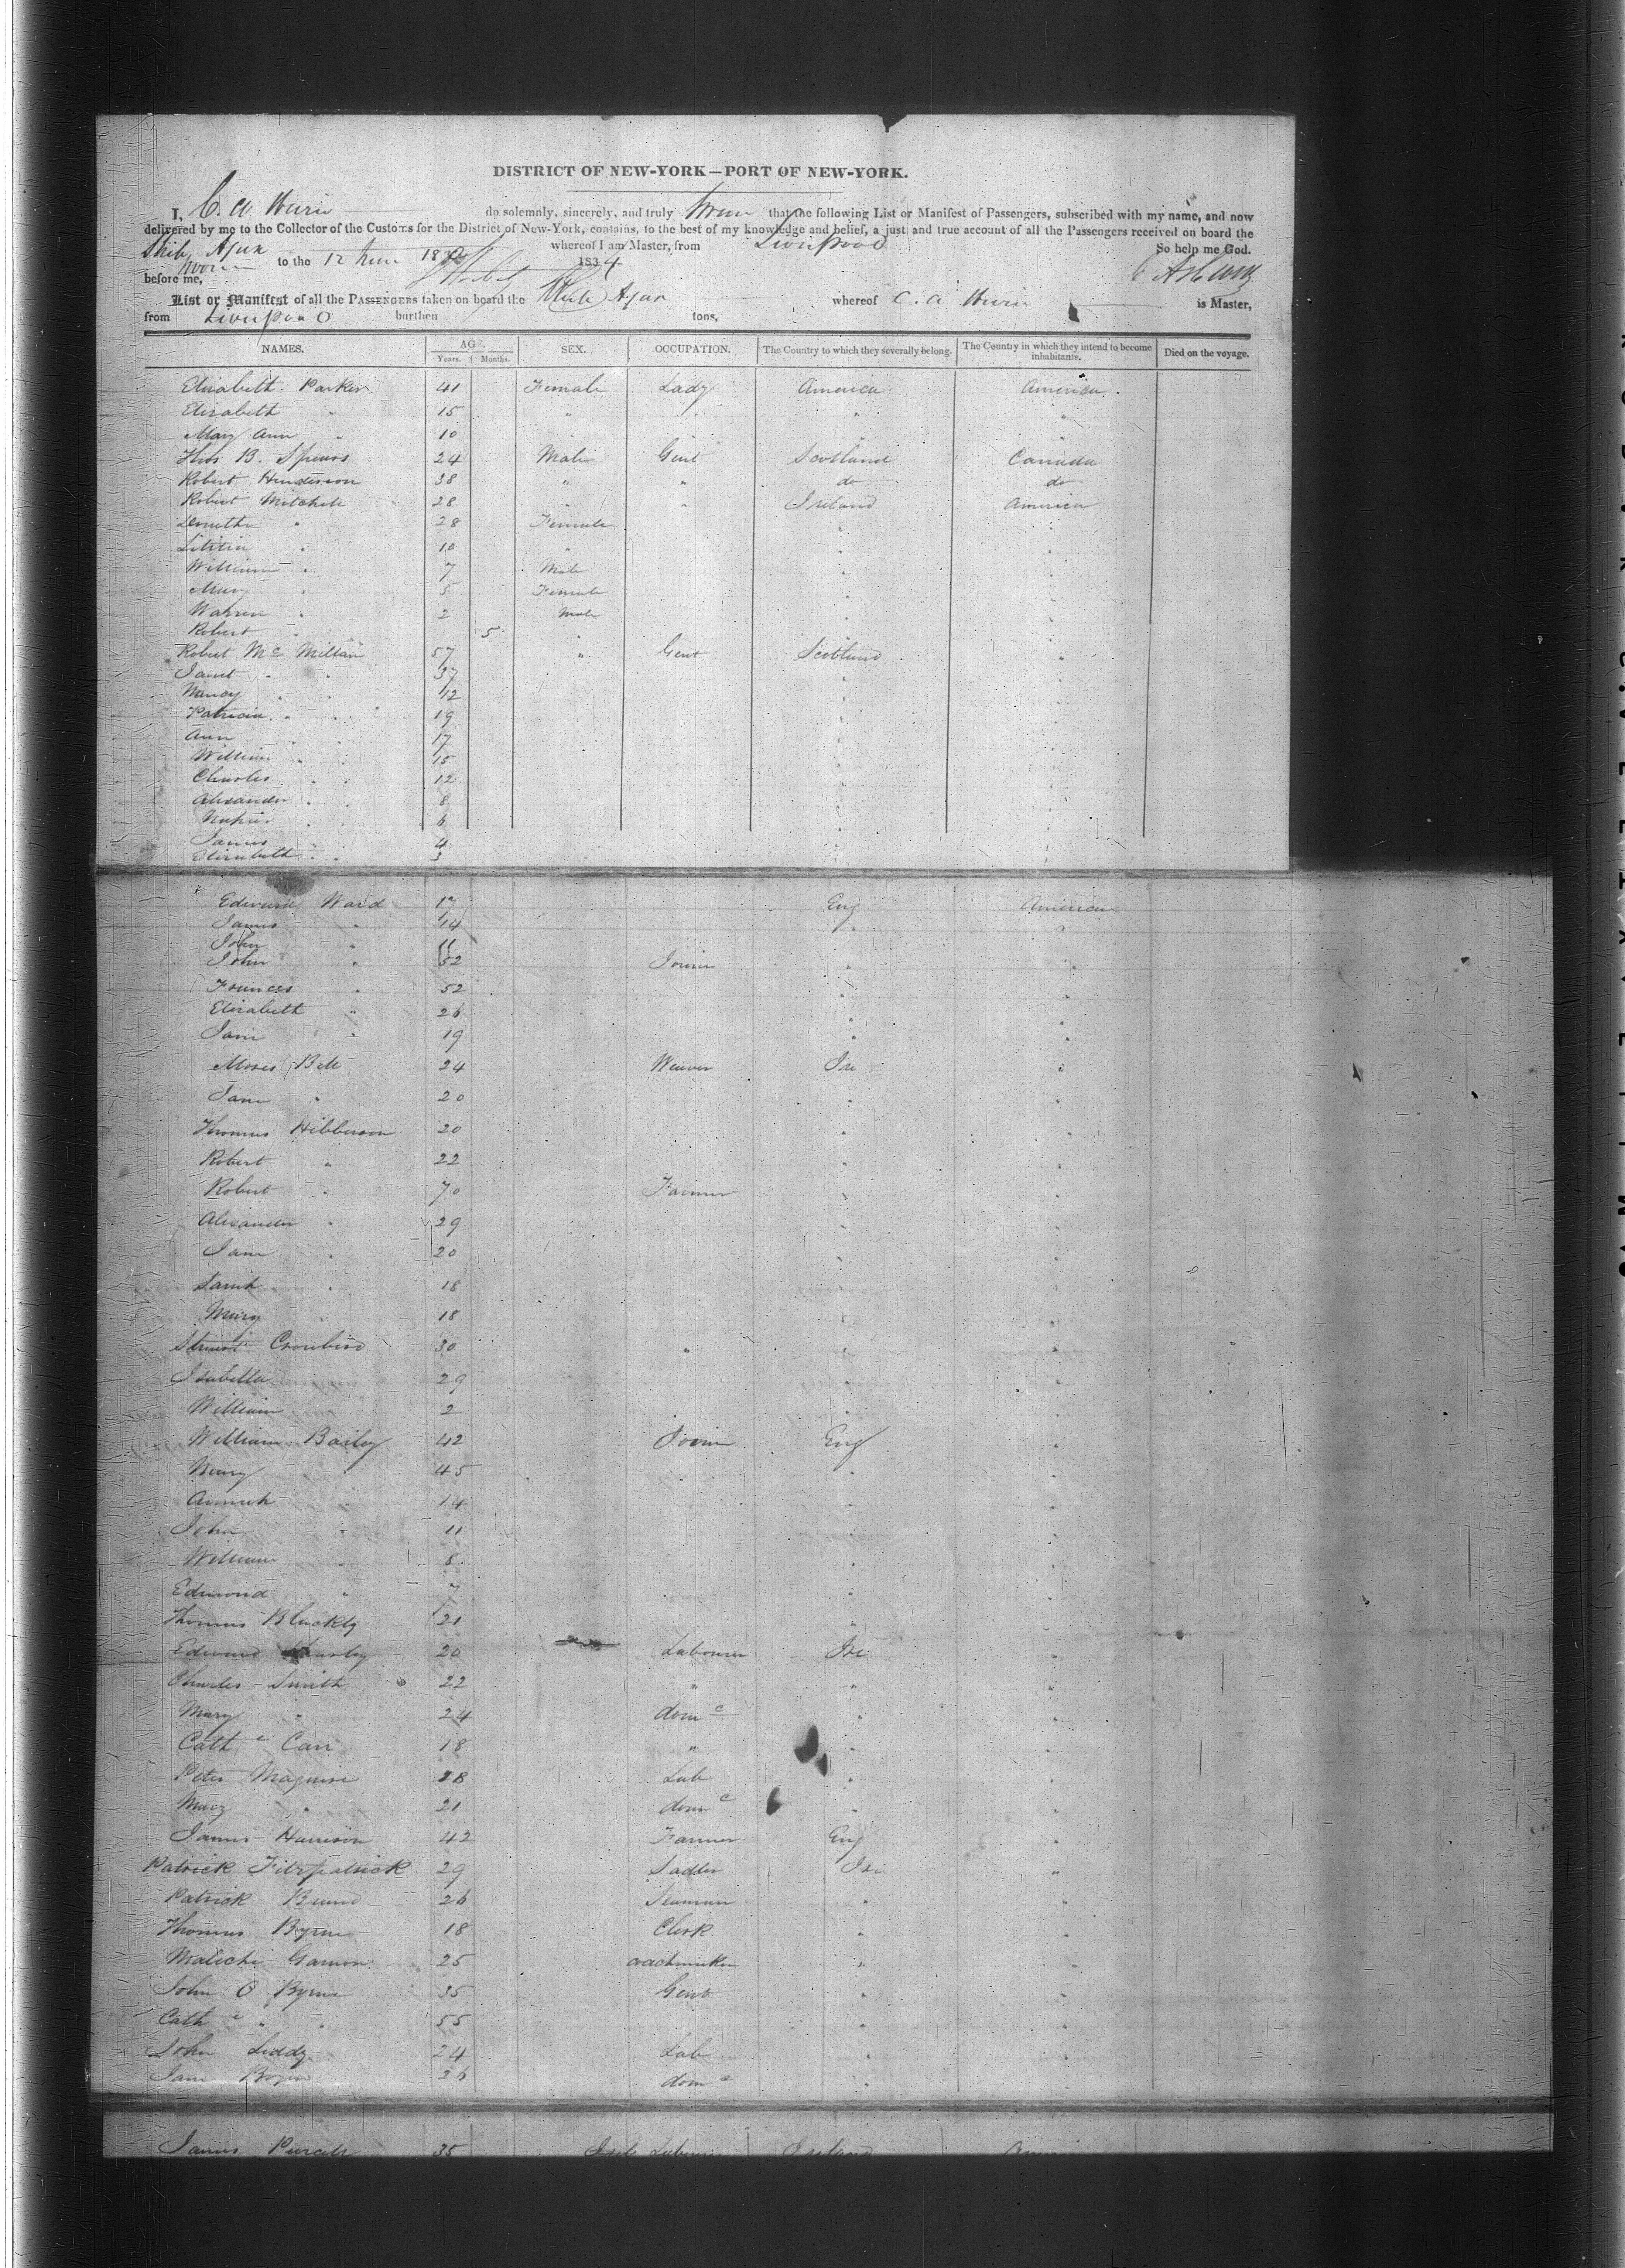 DISTRICT OF NEW-YORK—PORT OF NEW-YORK.
I, C. A do solemnly, sincerely, and truly that the following List or Manifest of Passengers, subscribed with my name, and now
delivered by me to the Collector of the Customs for the District of New-York, contains, to the best of my knowledge and belief, a just and true account of all the Passengers received on board the
Ship Ajax whereof I am Master, from Liverpool So help me God.
to the 12 1834
before me,
List or Manifest of all the PASSENGERS taken on board the Ship Ajax whereof C. A is Master,
from Liverpool burthen tons,
NAMES. AGE. Years. Months. SEX. OCCUPATION. The Country to which they severally belong. The Country in which they intend to become inhabitants. Died on the voyage.
Elizabeth Parker 41 Female Lady America America
Elizabeth " 15 " " "
Mary Ann " 10 " " " "
Thos B. Spears 24 Male Gent Scotland Canada
Robert Henderson 38 " " do do
Robert Mitchell 28 " " Ireland America
" 28 Female " "
Letitia " 10 " " "
William " 7 Male " "
Mary " 5 Female " "
Warren " 2 Male " "
Robert " 5 " " "
Robert Mc Millan 57 " Gent Scotland "
Janet " " 37 " "
Nancy " " 12 " "
Patricia " " 19 " "
Ann " " 17 " "
William " " 15 " "
Charles " " 12 " "
Alexander " " 8 " "
Napier " " 6 " "
James " " 4 " "
Elizabeth " " 3 " "
Edward Ward 17 Eng America
James " 14 " "
John " 11
John " 52 Joiner " "
Frances " 52 " "
Elizabeth " 26 " "
Jane " 19 " "
Moses Bell 24 Weaver Ire "
Jane " 20 " "
Thomas Hibberson 20 " "
Robert " 22 " "
Robert " 70 Farmer " "
Alexander " 29 " "
Jane " 20 " "
Sarah " 18 " "
Mary " 18 " "
Stewart 30 " " "
Isabella 29 " "
William 2 " "
William Bailey 42 Joiner Eng "
Mary " 45 " "
Hannah " 14 " "
John " 11 " "
William " 8 " "
Edmond " 7 " "
Thomas Blackly 21 " "
Edward 20 Labourer Ire "
Charles Smith 22 " " "
Mary " 24 domc " "
Cathe Carr 18 " " "
Peter Maguire 28 Lab " "
Mary " 21 domc " "
James Harrison 42 Farmer Eng "
Patrick Fitzpatrick 29 Sadler Ire "
Patrick 26 Seaman " "
Thomas Byrne 18 Clerk " "
Malichi Gannon 25 coachmaker " "
John O Byrne 35 Gent " "
Cathe " " 55 " "
John Liddy 24 Lab " "
Jane 26 domc " "
James Purcell 35 Labourer Ireland